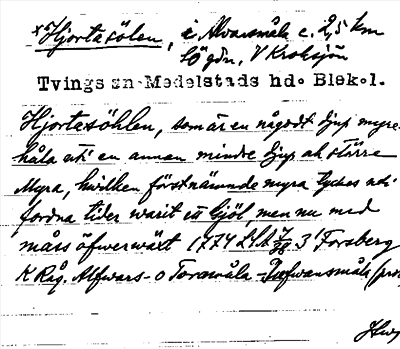 x Hjortasölen, i Alvarsmåla c. 2,5 km
SÖ gdn, V Kroksjön
Tvings sn Medelstads hd. Blek.l.
Hjortasöhlen, som är en någodt djup myre-
håla uti en annan mindre djup och större
Myra, hwilken förstnämnde myra lyckes uti
fordna tider warit en Giöl, men nu med
måss öfwerwäxt 1774 LSA 3 Forsberg
K Råg. Alfwars- o Toramåla -